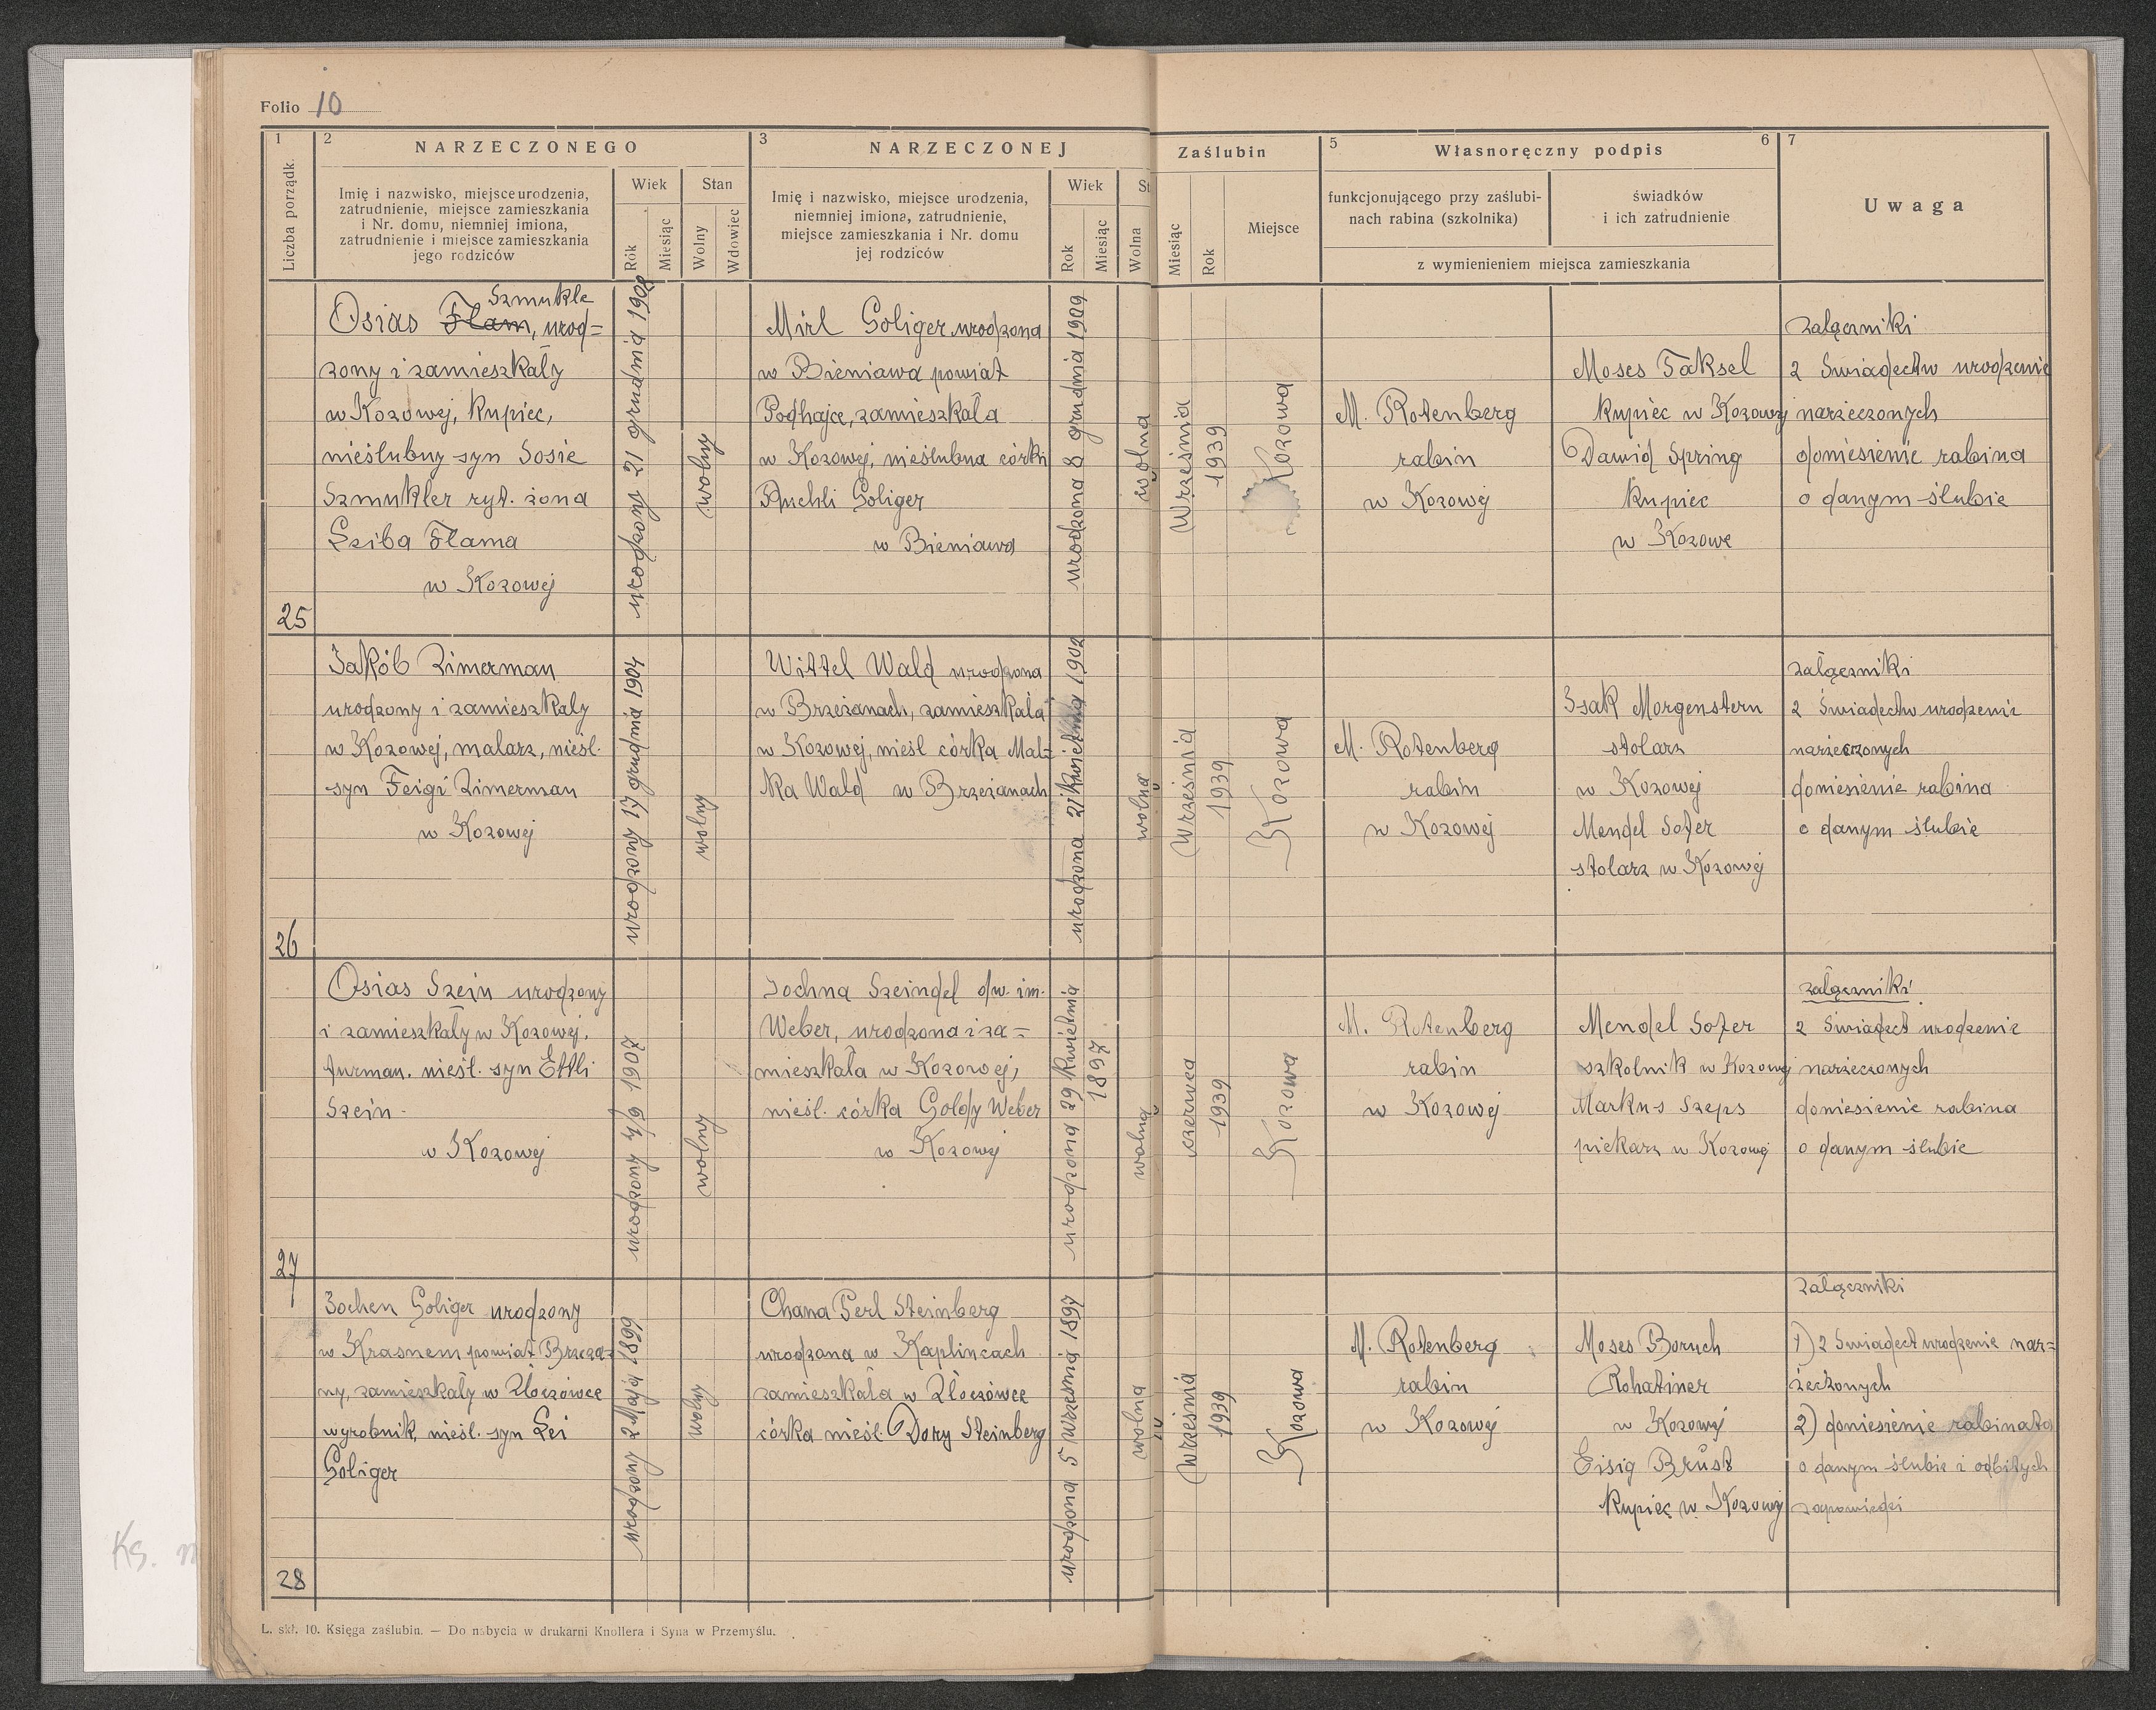 Folio 10
1
Liczba porządk.
2
NARZECZONEGO
Imię i nazwisko, miejsce urodzenia,
zatrudnienie, miejsce zamieszkania
i Nr. domu, niemniej imiona,
zatrudnienie i miejsce zamieszkania
jego rodziców
Wiek
Rok
Miesiąc
Stan
Wolny
Wdowiec
3
NARZECZONEJ
Imię i nazwisko, miejsce urodzenia,
niemniej imiona, zatrudnienie,
miejsce zamieszkania i Nr. domu
jej rodziców
Wiek
Rok
Miesiąc
St
Wolna
Zaślubin
Miesiąc
Rok
Miejsce
5
Własnoręczny podpis
6
funkcjonującego przy zaślubi-
nach rabina (szkolnika)
świadków
i ich zatrudnienie
z wymienieniem miejsca zamieszkania
7
Uwaga
25
Szmukle
Osias Flam, urod=
zony i zamieszkały
w Kozowej, kupiec,
nieślubny syn Sosie
Szmukler ryt. żona
Leiba Flama
w Kozowej
urodzony 21 grudnia 1908
wolny
Mirl Goliger urodzona
w Bieniawa powiat
Podhajce, zamieszkała
w Kozowej, nieślubna córka
Ruchli Goliger
w Bieniawa
urodzona 8 grudnia 1909
wolna
Września
1939
Kozowa
M. Rotenberg
rabin
w Kozowej
Moses Faksel
kupiec w Kozowej
Dawid Spring
kupiec
w Kozowe
załączniki
2 Świadectw urodzenie
narzeczonych
doniesienie rabina
o danym ślubie
26
Jakób Zimerman
urodzony i zamieszkały
w Kozowej, malarz, nieśl.
syn Feigi Zimerman
w Kozowej
urodzony 17 grudnia 1904
wolny
Wittel Wald urodzona
w Brzeżanach, zamieszkała
w Kozowej, nieśl córka Mal=
ka Wald w Brzeżanach
urodzona 21 kwietnia 1902
wolna
Września
1939
Kozowa
M. Rotenberg
rabin
w Kozowej
Isak Morgenstern
stolarz
w Kozowej
Mendel Sofer
stolarz w Kozowej
załączniki
2 Świadectw urodzenie
narzeczonych
doniesienie rabina
o danym ślubie
27
Osias Szein urodzony
i zamieszkały w Kozowej,
furman. nieśl. syn Ettli
Szein -
w Kozowej
urodzony 4/9 1907
wolny
Jochna Szeindel dw. im.
Weber, urodzona i za=
mieszkała w Kozowej,
nieśl. córka Goldy Weber
w Kozowej
urodzona 29 kwietnia
1897
wolna
czerwca
1939
Kozowa
M. Rotenberg
rabin
w Kozowej
Mendel Sofer
szkolnik w Kozowej
Markus Szeps
piekarz w Kozowej
załączniki
2 Świadect urodzenie
narzeczonych
doniesienie rabina
o danym ślubie
28
Jochen Goliger urodzony
w Krasnem powiat Brzeża=
ny, zamieszkały w Złoczówce
wyrobnik, nieśl. syn Lei
Goliger
urodzony 2 Maja 1899
wolny
Chana Perl Steinberg
urodzona w Kaplincach
zamieszkała w Złoczówce
córka nieśl. Dory Steinberg
urodzona 5 września 1897
wolna
Września
1939
Kozowa
M. Rotenberg
rabin
w Kozowej
Moses Boruch
Rohatiner
w Kozowej
Eisig Brust
kupiec w Kozowej
załączniki
1) 2 Świadect urodzenie nar=
żeczonych
2) doniesienie rabinata
o danym ślubie i odbitych
zapowiedzi
L. skł. 10. Księga zaślubin. — Do nabycia w drukarni Knollera i Syna w Przemyślu.